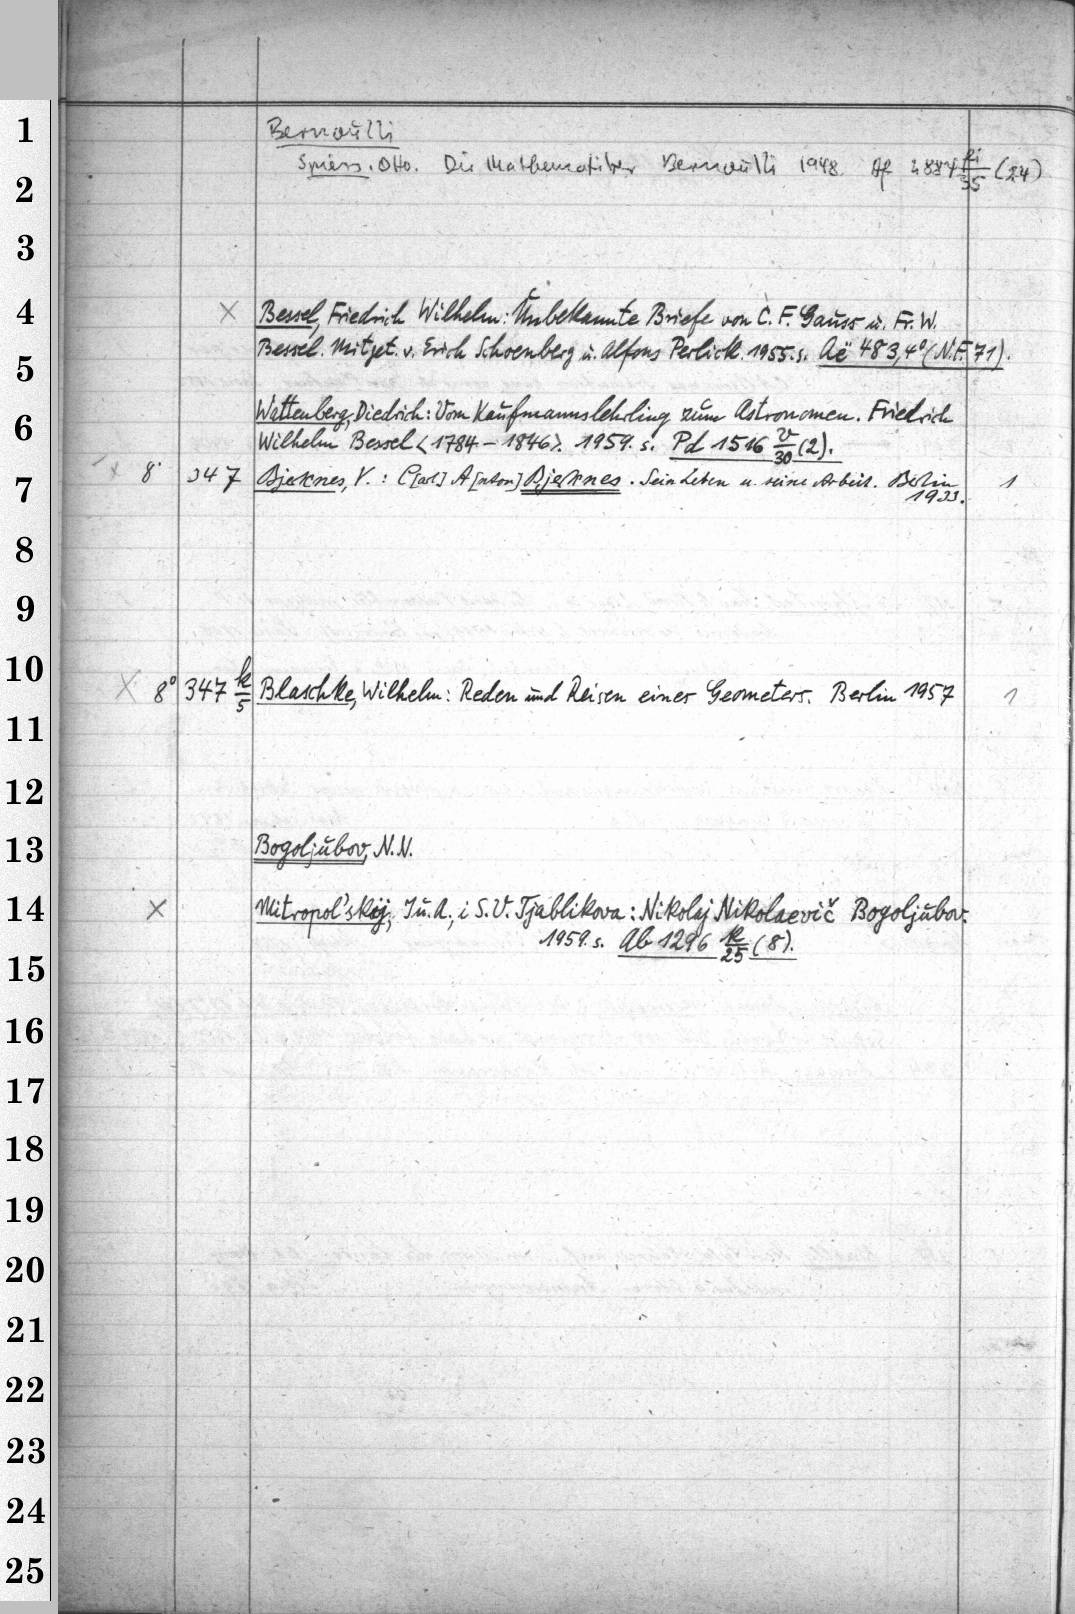 1
Bernoulli
Spiess, Otto. Die Mathematiker Bernoulli 1948. Af 4887 (24)
2
3
4 × Bessel, Friedrich Wilhelm: Unbekannte Briefe von C. F. Gauss u. Fr. W.
Bessel. Mitget. v. Erich Schoenberg u. Alfons Perlick. 1955. s. Aë 483, 4° (N.F. 71).
5
Wattenberg, Diedrich: Vom Kaufmannslehrling zum Astronomen. Friedrich
6
Wilhelm Bessel <1784–1846>. 1959. s. Pd 1516 v/30 (2).
7 × 8° 347 Bjerknes, V.: C[arl] A[nton] Bjerknes. Sein Leben u. seine Arbeit. Berlin 1
1933.
8
9
10
× 8° 347 k/5 Blaschke, Wilhelm: Reden und Reisen eines Geometers. Berlin 1957 1
11
12
13 Bogoljubov, N.N.
14 × Mitropol'skij, Ju. A., i S. V. Tjablikova: Nikolaj Nikolaevič Bogoljubov.
1959. s. Ab 1296 k/25 (8).
15
16
17
18
19
20
21
22
23
24
25